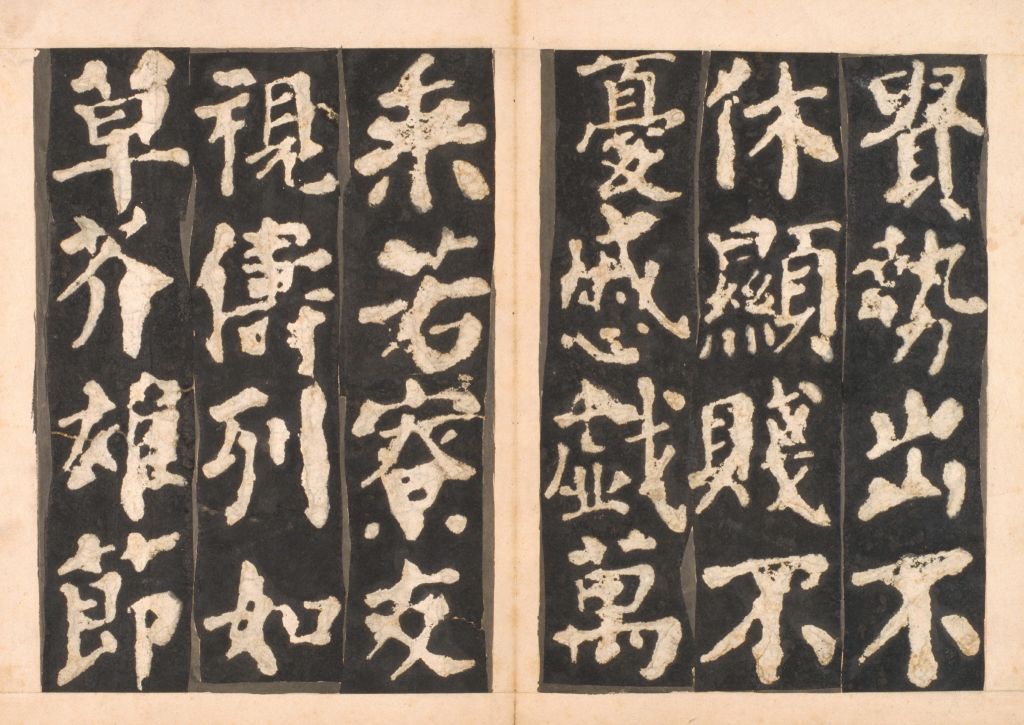 賢勢出不
休顯賤不
憂慼戲萬
乘若寮友
視儔列如
草芥雄節